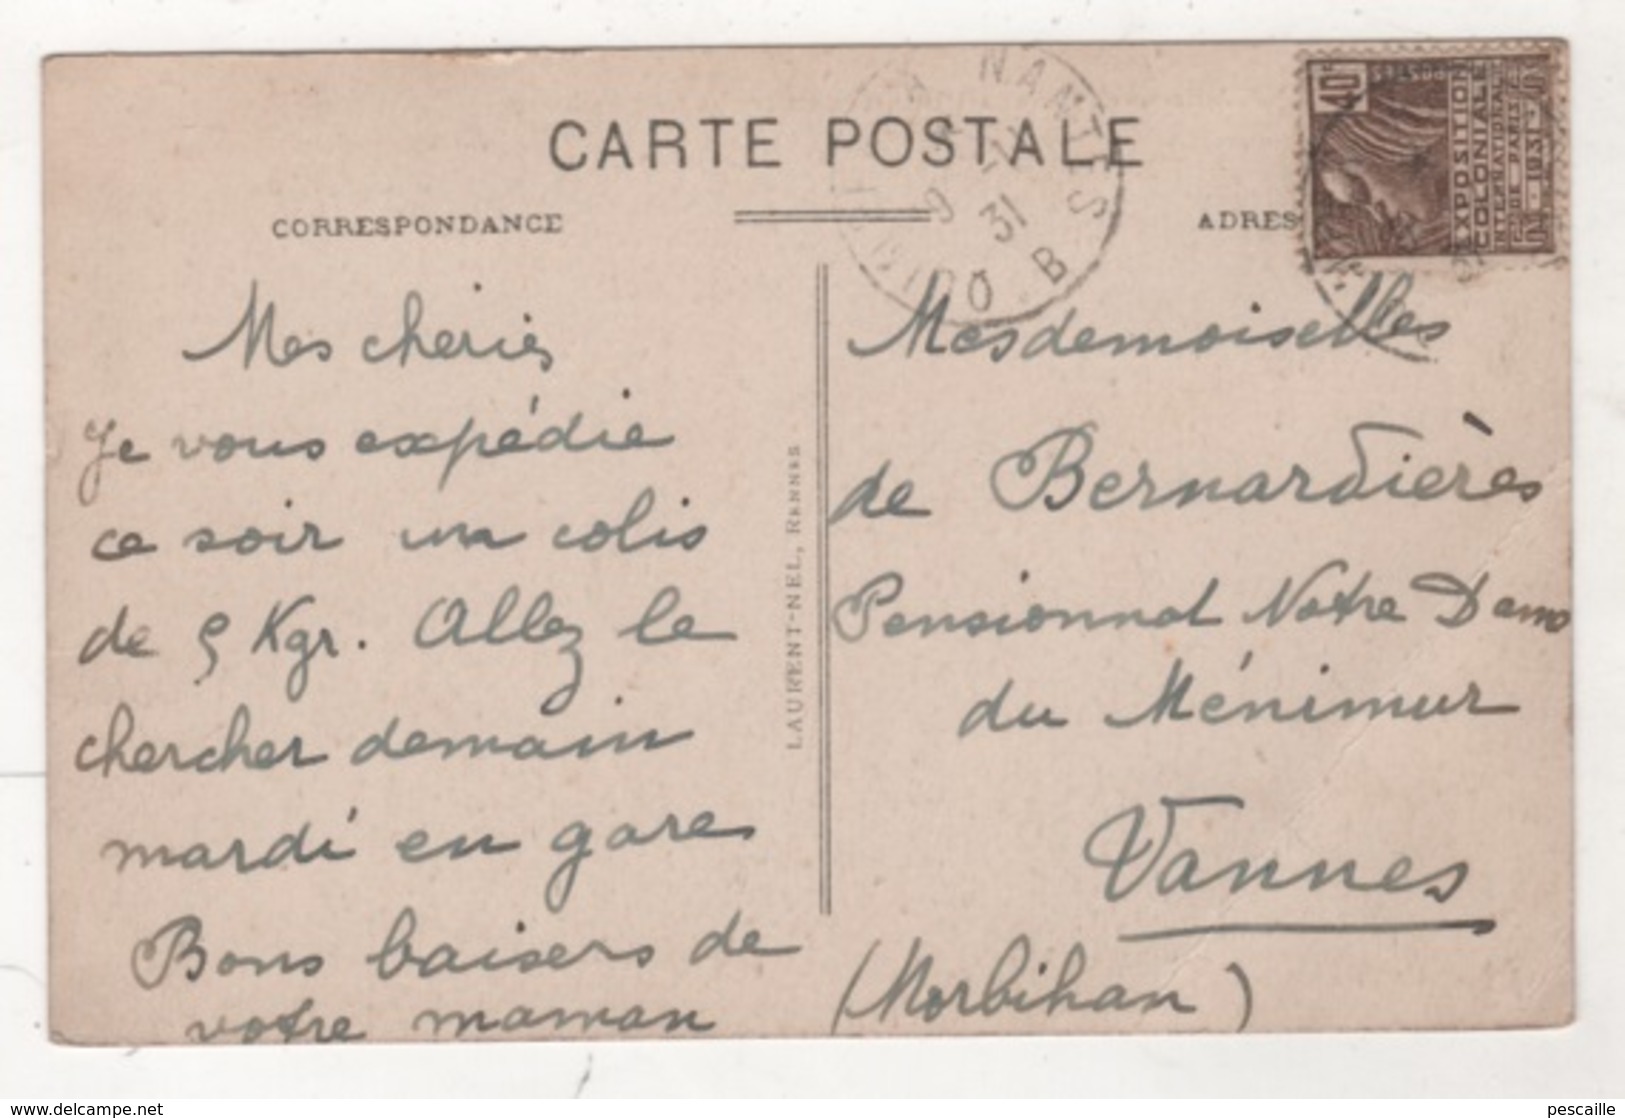 CARTE POSTALE
CORRESPONDANCE
ADRES
NANTES
QUIMPER B
9
31
40c
POSTES
EXPOSITION
COLONIALE
INTERNATIONALE
DE PARIS
1931
Mes cheries
Je vous expédie
ce soir un colis
de 5 Kgr. Allez le
chercher demain
mardi en gare
Bons baisers de
votre maman
LAURENT-NEL, RENNES
Mesdemoiselles
de Bernardières
Pensionnat Notre Dame
du Ménimur
Vannes
(Morbihan)
www.delcampe.net
pescaille